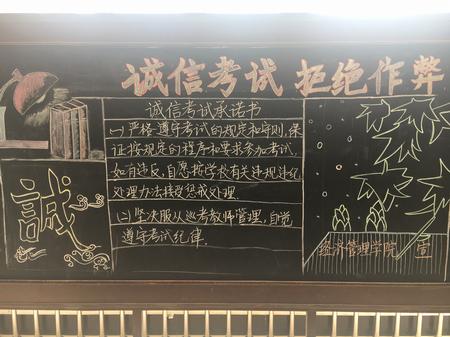 诚信考试 拒绝作弊
诚信考试承诺书
(一)严格遵守考试的规定和守则,保
证按规定的程序和要求参加考试,
如有违反,自愿按学校有关违规违纪
处理办法接受惩戒处理.
(二)坚决服从巡考教师管理,自觉
遵守考试纪律.
誠
经济管理学院 宣